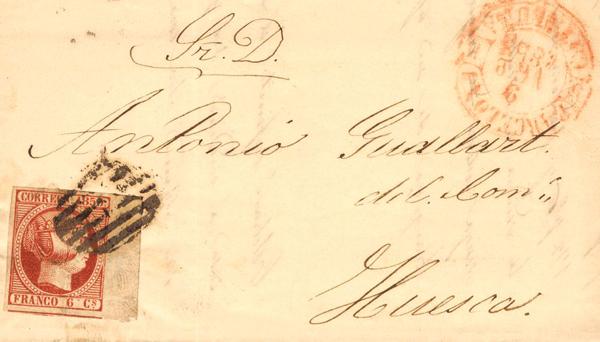 Sr. D.
Antonio Guallart.
del Com.º
Huesca.
CORREOS
FRANCO 6 Cs